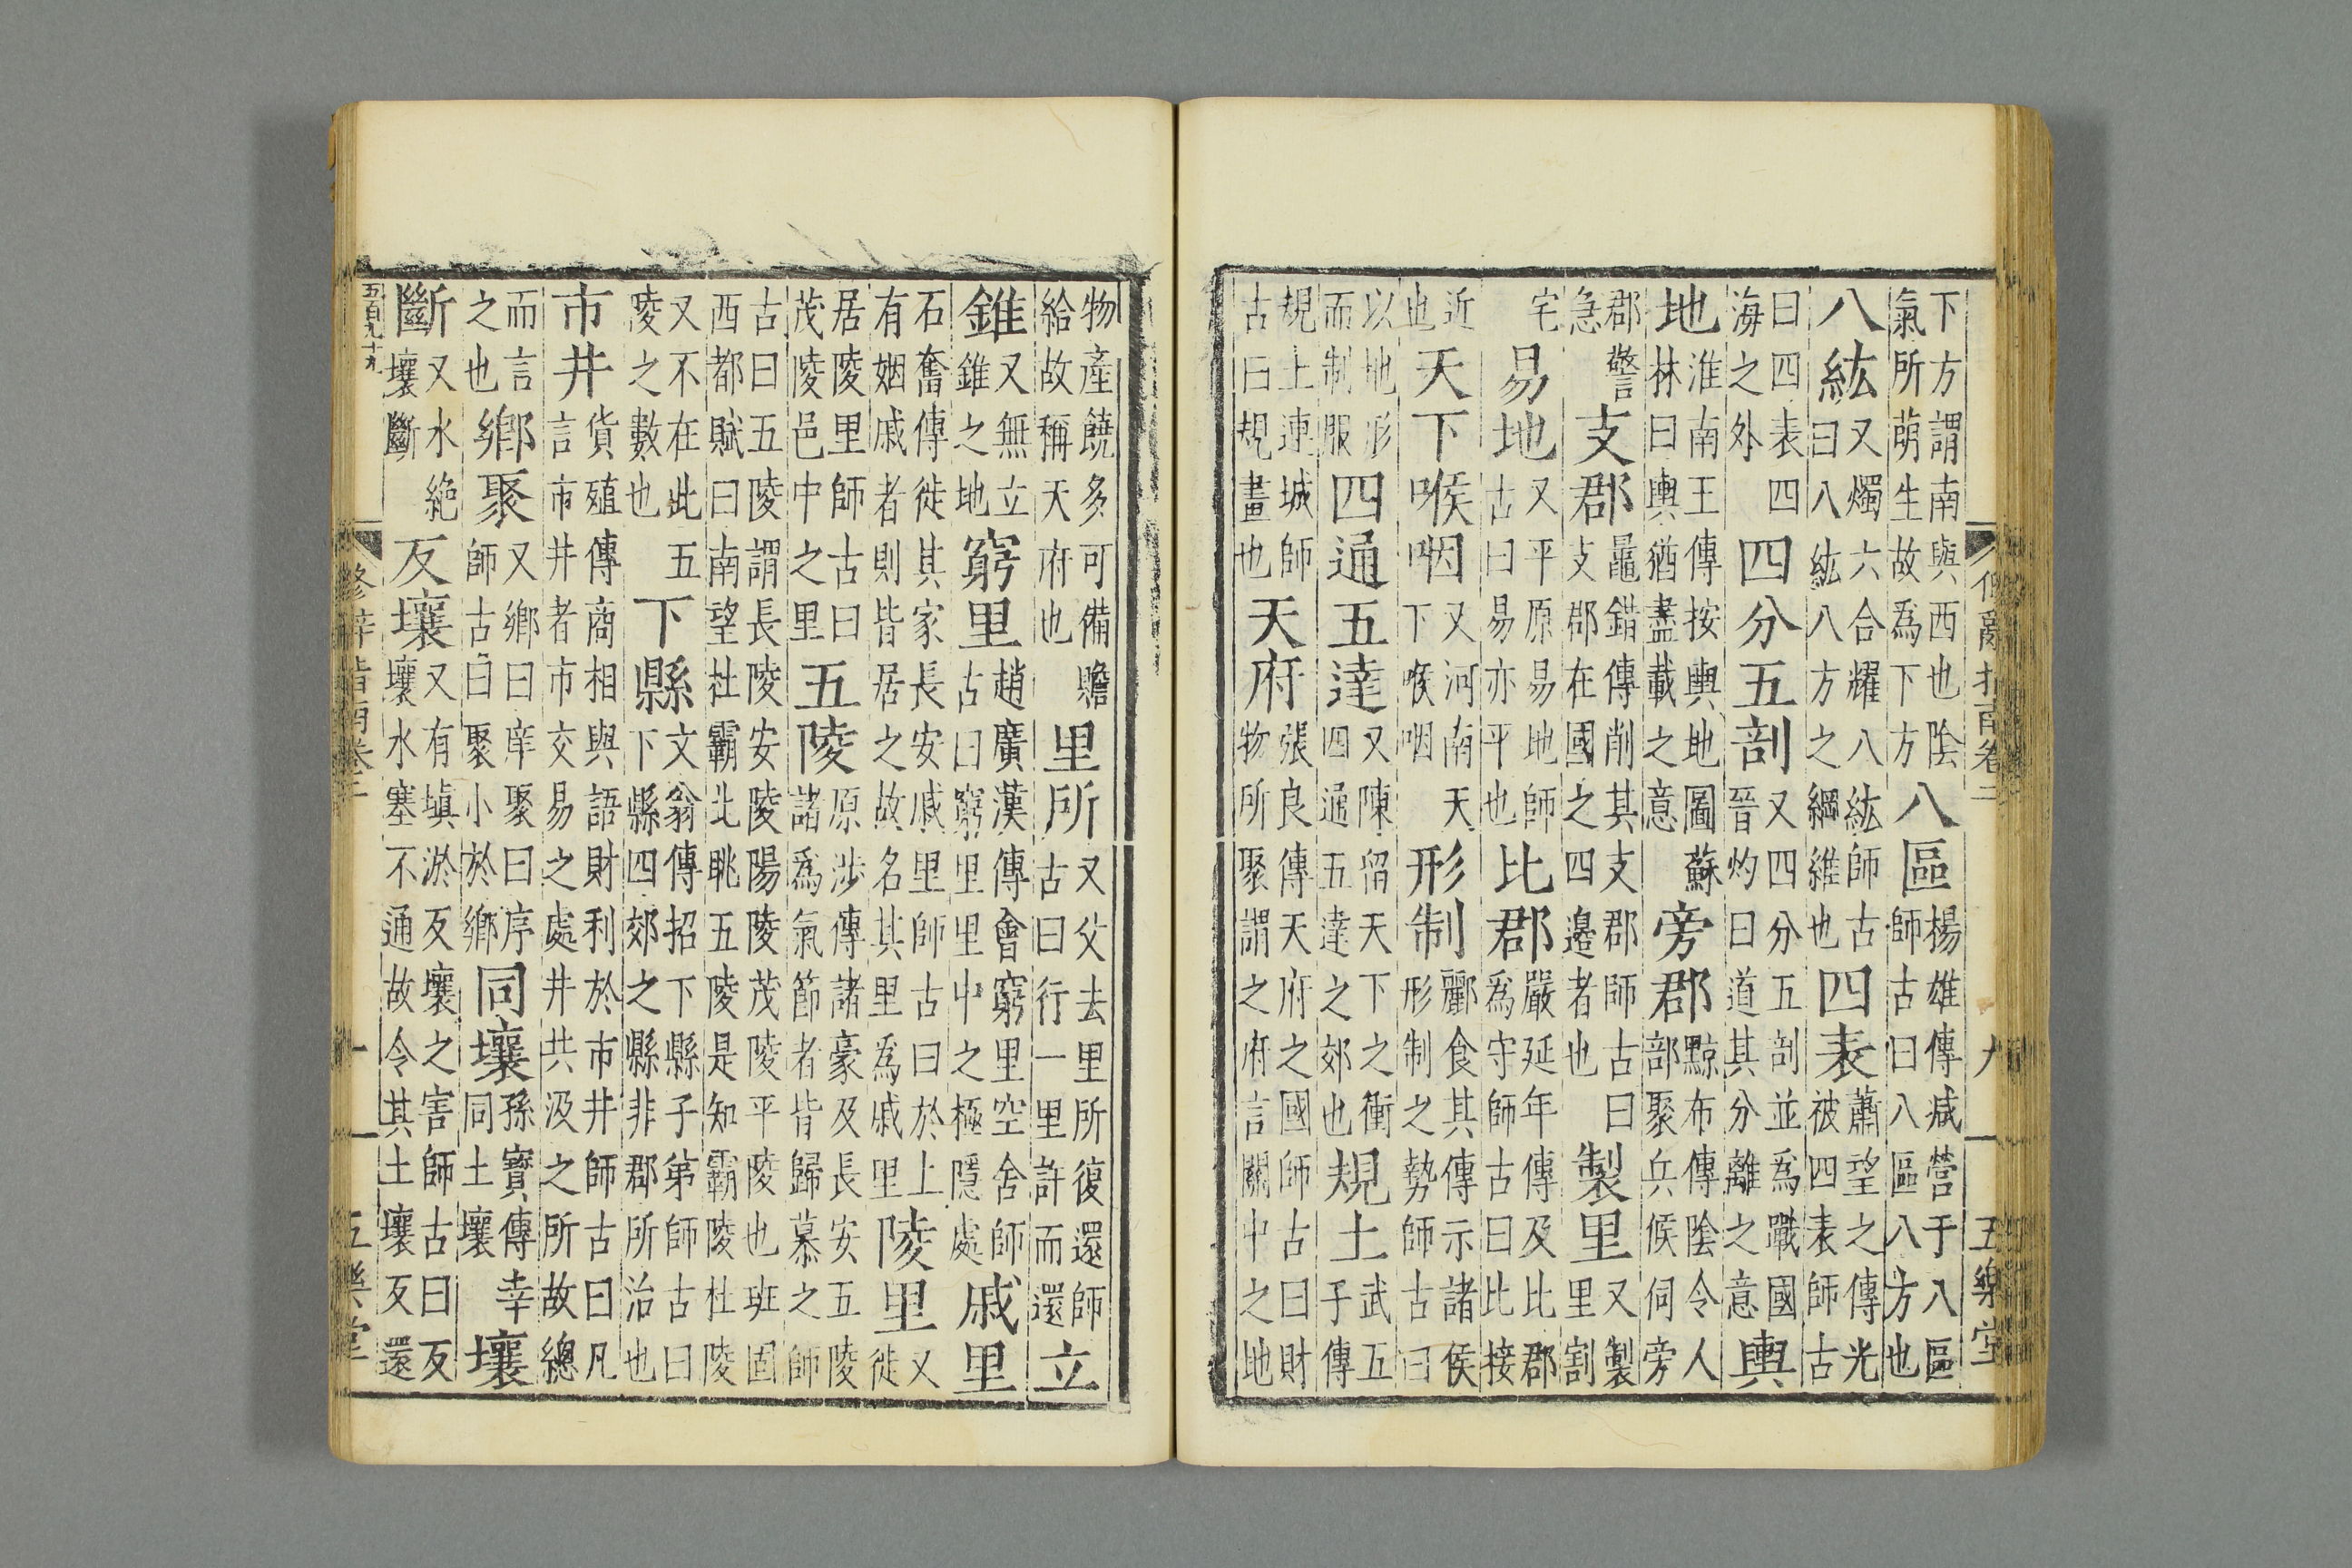 修辭指南卷二 九 五樂堂
下方謂南與西也陰氣所萌生故爲下方八區楊雄傳咸營于八區師古曰八區八方也
八紘又燭六合耀八紘師古曰八紘八方之綱維也四表蕭望之傳光被四表師古
曰四表四海之外四分五剖又四分五剖並爲戰國晉灼曰道其分離之意輿
地淮南王傳按輿地圖蘇林曰輿猶盡載之意旁郡黥布傳陰令人部聚兵候伺旁
郡警急支郡鼂錯傳削其支郡師古曰支郡在國之四邊者也製里又製里割
宅易地又平原易地師古曰易亦平也比郡嚴延年傳及比郡爲守師古曰比接
近也天下喉咽又河南天下喉咽形制酈食其傳示諸侯形制之勢師古曰
以地形而制服四通五達又陳留天下之衝四通五達之郊也規土武五子傳
規上連城師古曰規畫也天府張良傳天府之國師古曰財物所聚謂之府言關中之地
物產饒多可備贍給故稱天府也里所又父去里所復還師古曰行一里許而還立
錐又無立錐之地窮里趙廣漢傳會窮里空舍師古曰窮里里中之極隱處戚里
石奮傳徙其家長安戚里師古曰於上有姻戚者則皆居之故名其里爲戚里陵里又徙
居陵里師古曰茂陵邑中之里五陵原涉傳諸豪及長安五陵諸爲氣節者皆歸慕之師
古曰五陵謂長陵安陵陽陵茂陵平陵也班固西都賦曰南望杜霸北眺五陵是知霸陵杜陵
又不在此五陵之數也下縣文翁傳招下縣子第師古曰下縣四郊之縣非郡所治也
市井貨殖傳商相與語財利於市井師古曰凡言市井者市交易之處井共汲之所故總
而言之也鄉聚又鄉曰庠聚曰序師古曰聚小於鄉同壤孫寶傳幸同土壤壤
斷又水絶壤斷反壤又有塡淤反壤之害師古曰反壤水塞不通故令其土壤反還
五百九十九
修辭指南卷二 十 五樂堂